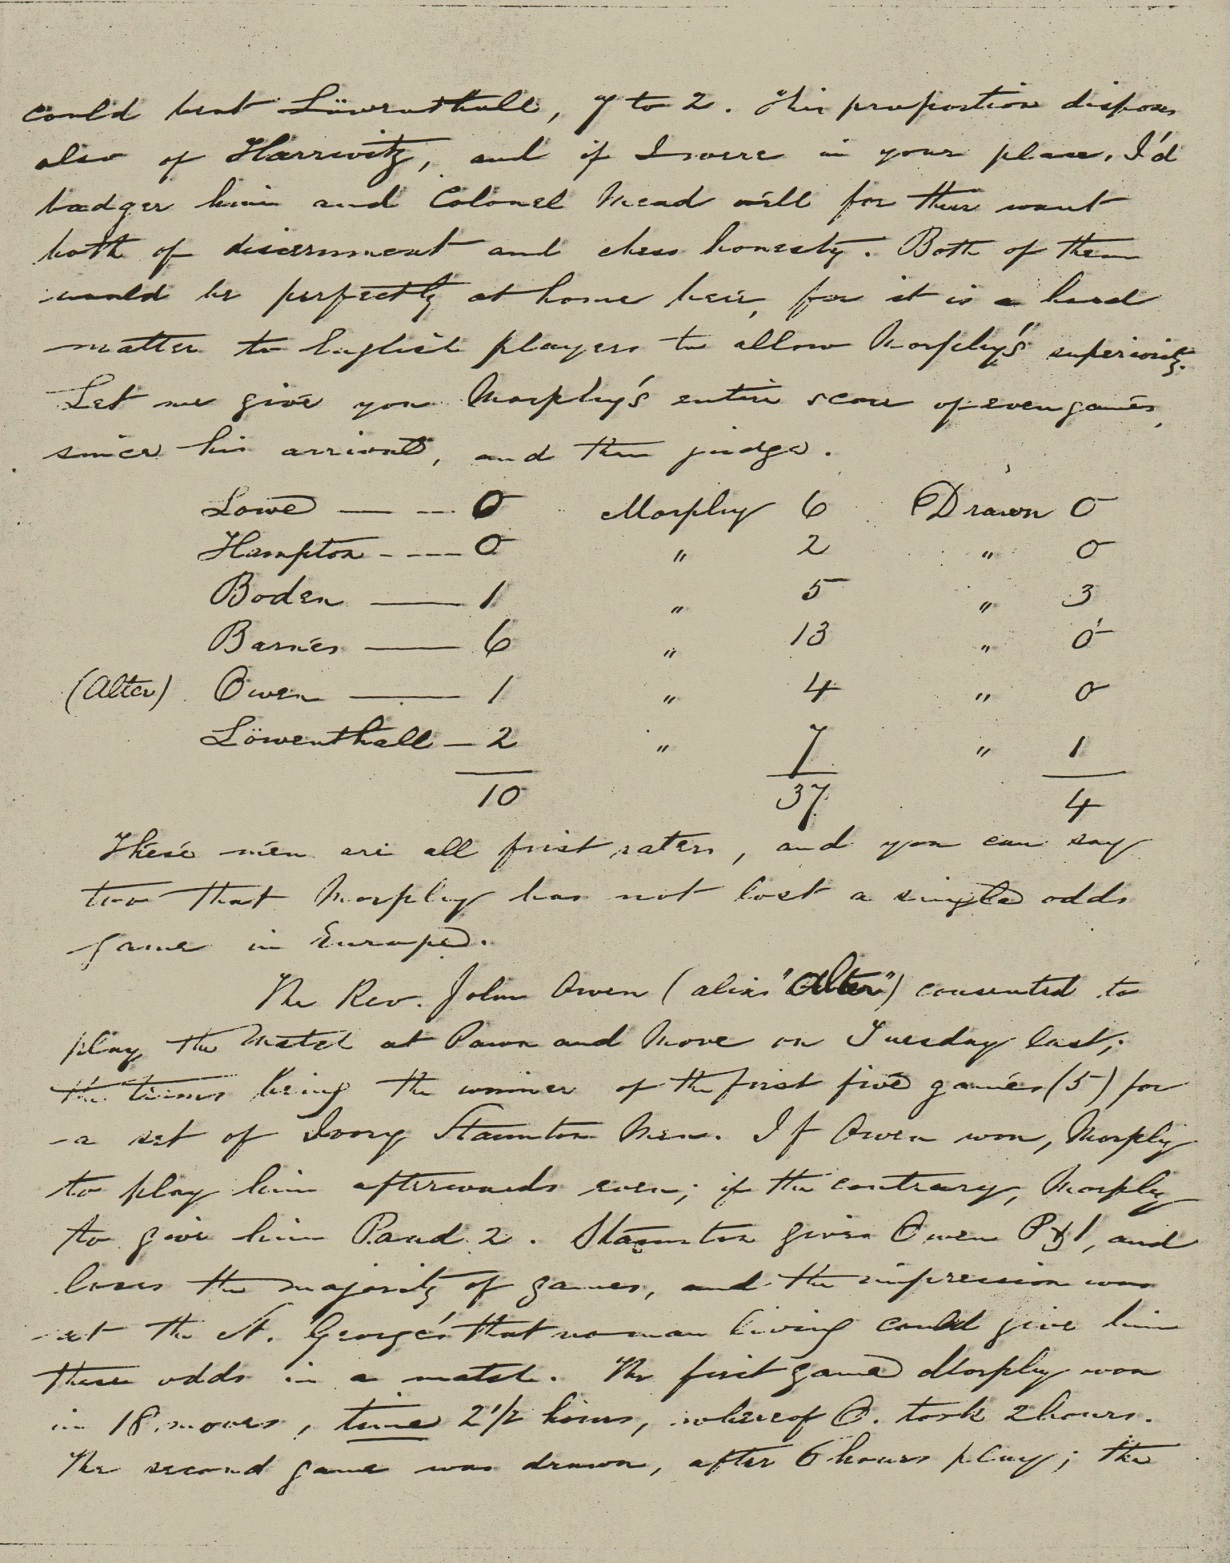 could beat Löwenthall, 7 to 2. This proportion disposes
also of Harrwitz, and if I were in your place, I'd
badger him and Colonel Mead well for their want
both of discernment and chess honesty. Both of them
would be perfectly at home here, for it is a hard
matter to English players to allow Morphy's superiority.
Let me give you Morphy's entire score of even games,
since his arrival, and then judge.
Lowe — -- 0 Morphy 6 Drawn 0
Hampton ---- 0 " 2 " 0
Boden —— 1 " 5 " 3
Barnes —— 6 " 13 " 0
(Alter) Owen —— 1 " 4 " 0
Löwenthall — 2 " 7 " 1
10 37 4
These men are all first raters, and you can say
too that Morphy has not lost a single odds
game in Europe.
The Rev. John Owen (alias "Alter") consented to
play the match at Pawn and Move on Tuesday last;
the terms being the winner of the first five games (5) for
a set of Ivory Staunton Men. If Owen won, Morphy
to play him afterwards even; if the contrary, Morphy
to give him P and 2. Staunton gives Owen P & 1, and
loses the majority of games, and the impression was
at the St. George's that no man living could give him
these odds in a match. The first game Morphy won
in 18 moves, time 2 1/2 hours, whereof O. took 2 hours.
The second game was drawn, after 6 hours play; the